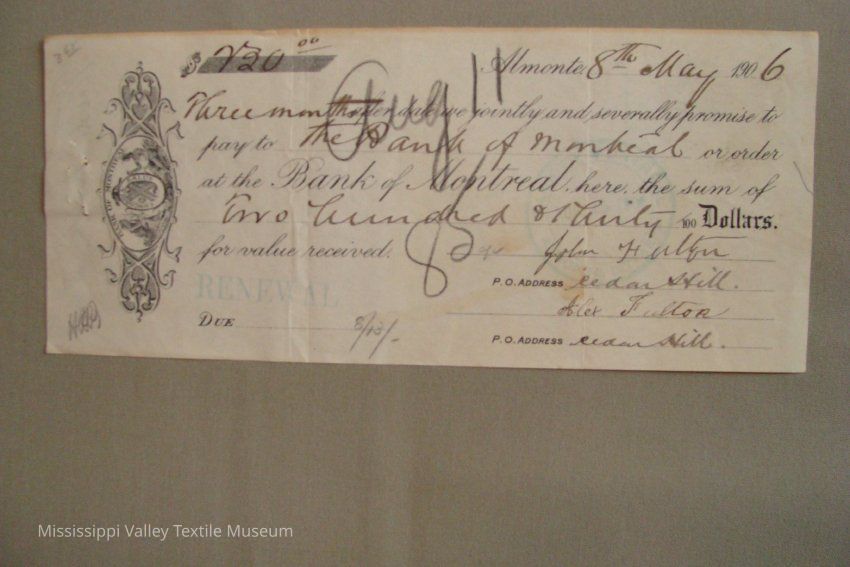 $ 230.00
Almonte, 8th May 1906
Three months after date we jointly and severally promise to
pay to the Bank of Montreal or order
at the Bank of Montreal, here, the sum of
Two hundred & thirty /100 Dollars.
for value received.
John Fulton
P.O. ADDRESS Cedar Hill.
RENEWAL
Alex Fulton
DUE
P.O. ADDRESS Cedar Hill.
Aug 11
Mississippi Valley Textile Museum